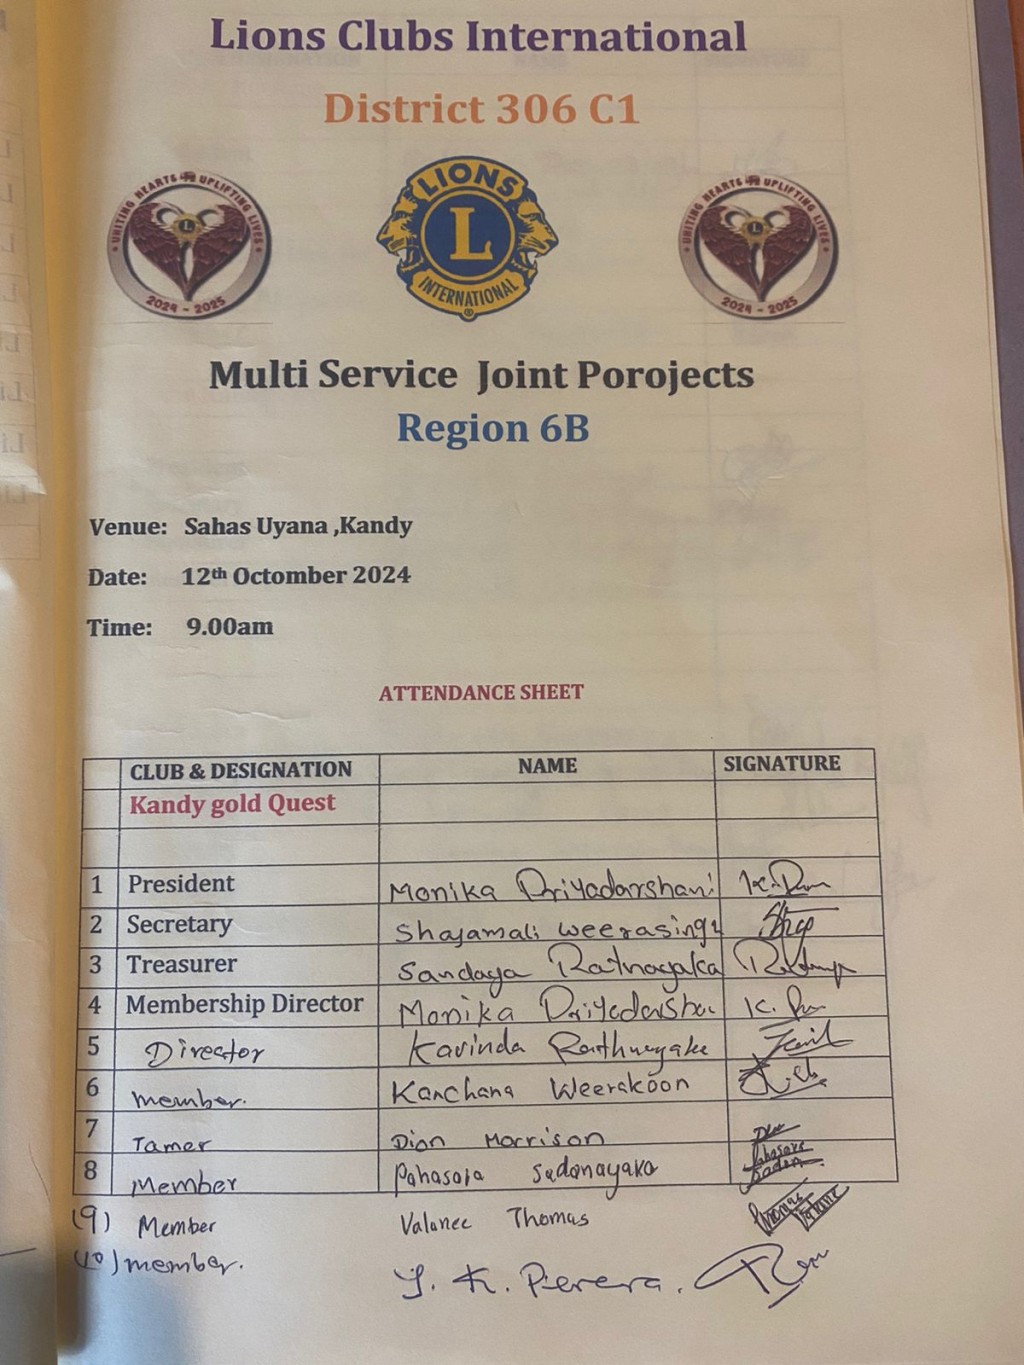 Lions Clubs International
District 306 C1
UNITING HEARTS UPLIFTING LIVES
2024 - 2025
LIONS
L
INTERNATIONAL
®
UNITING HEARTS UPLIFTING LIVES
2024 - 2025
Multi Service Joint Porojects
Region 6B
Venue: Sahas Uyana ,Kandy
Date: 12th Octomber 2024
Time: 9.00am
ATTENDANCE SHEET
CLUB & DESIGNATION NAME SIGNATURE
Kandy gold Quest
1 President Monika Driyadarshani
2 Secretary Shayamali weerasing
3 Treasurer Sandaya Ratnayaka
4 Membership Director Monika K.
5 Director Kavinda
6 member. Kanchana Weerakoon
7 Tamer Dion Morrison
8 Member
(9) Member Thomas Thomas
(10) member. K. Perera.